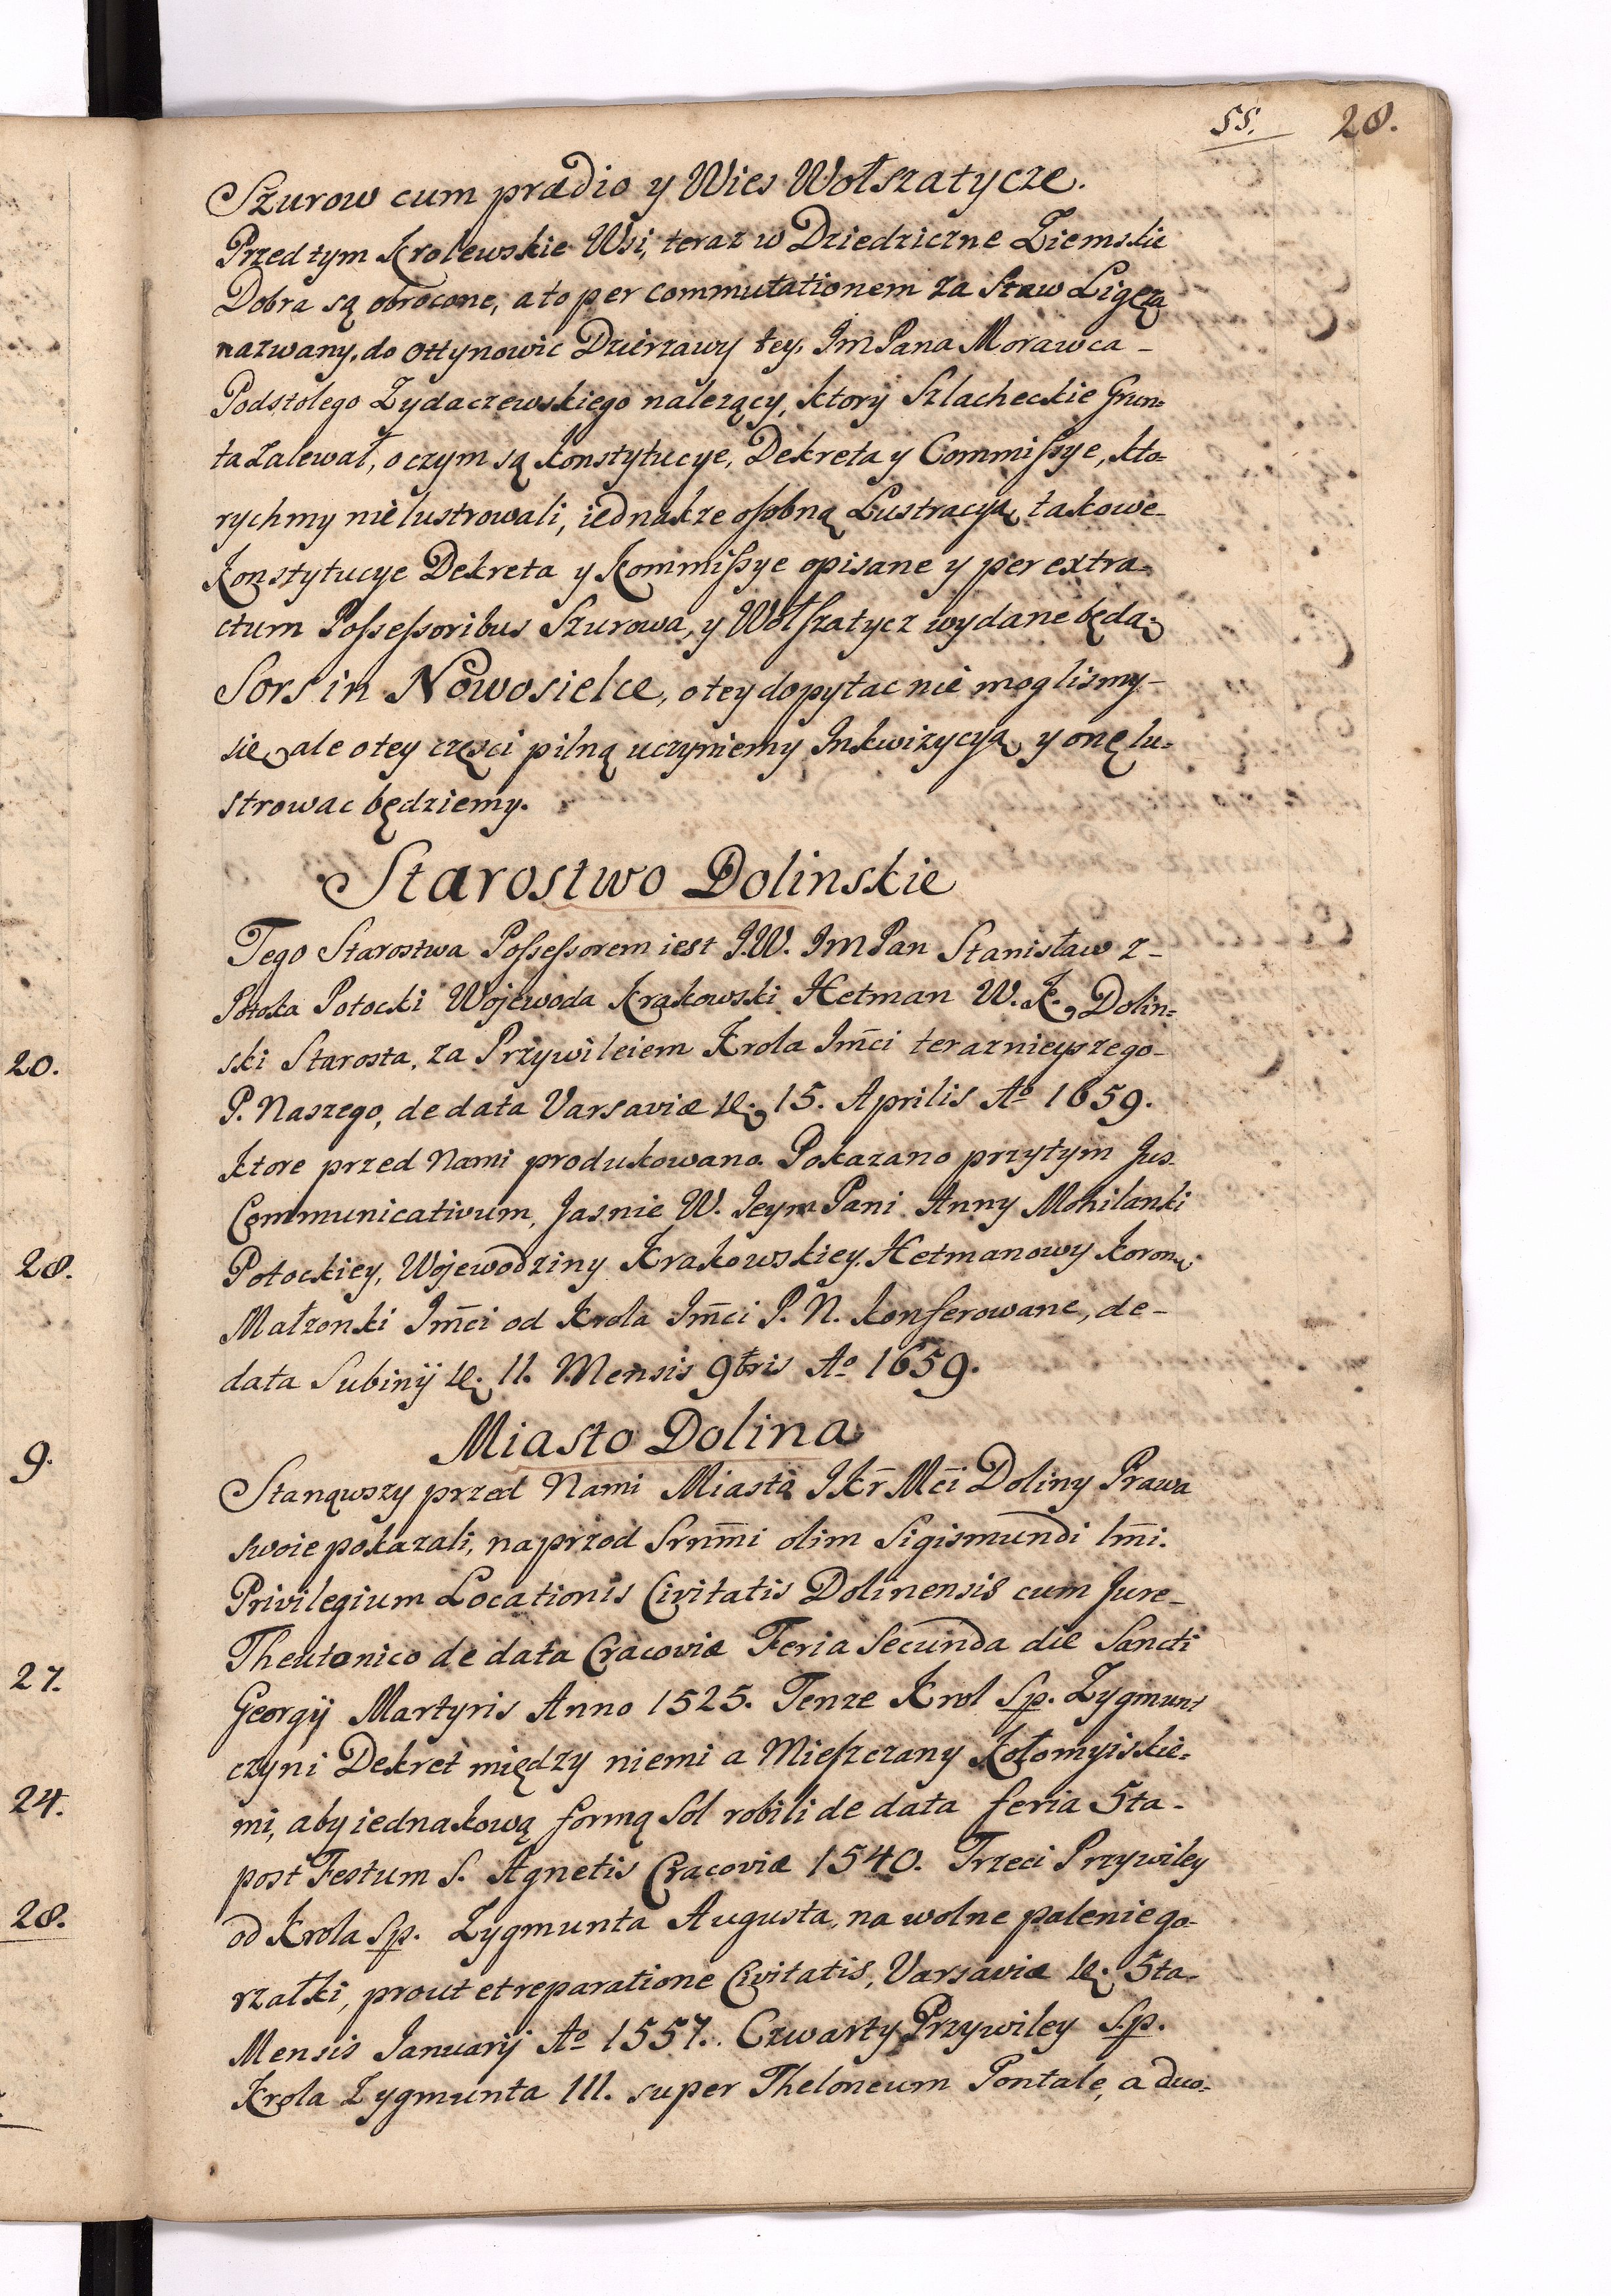 55. 28.
Szurow cum prædio y Wies Wołszatycze.
Przed tym Krolewskie Wsi, teraz w Dziedziczne Ziemskie
Dobra są obrocone, a to per commutationem za Staw Ligęza
nazwany, do Ottynowic Dzierzawy tey, Im Pana Morawca -
Podstolego Zydaczewskiego nalezący, ktory Szlacheckie Grun=
ta zalewał, o czym są Konstytucye, Dekreta y Commissye, kto=
rychmy nie lustrowali, iednakze osobną Lustracyą takowe -
Konstytucye Dekreta y Kommissye opisane y per extra=
ctum Possessoribus Szurowa, y Wołszatycz wydane będą;
Sors in Nowosielce, o tey dopytac nie moglismy -
się, ale o tey części pilną uczyniemy Inkwizycyą y onę lu=
strowac będziemy.
Starostwo Dolinskie
Tego Starostwa Possessorem iest J.W. Im Pan Stanisław z -
Potoka Potocki Wojewoda Krakowski Hetman W. K., Dolin=
ski Starosta, za Przywileiem Krola Im̄ci teraznieyszego -
P. Naszego, de data Varsaviæ d. 15. Aprilis Aº 1659.
Ktore przed Nami produkowano. Pokazano przytym Jus
Communicativum, Jasnie W. Jeym Pani Anny Mohilanki
Potockiey, Wojewodziny Krakowskiey, Hetmanowy Koron:
Małzonki Im̄ci od Krola Im̄ci P. N. konferowane, de -
data Subinij d. 11. Mensis 9bris Aº 1659.
Miasto Dolina
Stanąwszy przed Nami Miasta J Kr̄ Mc̄i Doliny Prawa
swoie pokazali, naprzod Srnm̄i olim Sigismundi Im̄i.
Privilegium Locationis Civitatis Dolinensis cum Jure -
Theutonico de data Cracoviæ Feria Secunda die Sancti
Georgij Martyris Anno 1525. Tenze Krol Sp. Zygmunt
czyni Dekret między niemi a Mieszczany Kołomyiskie=
mi, aby iednakową formą Sol robili de data feria 5ta -
post Festum S. Agnetis Cracoviæ 1540. Trzeci Przywiley
od Krola Sp. Zygmunta Augusta, na wolne palenie go=
rzałki, prout et reparatione Civitatis, Varsaviæ d. 5ta -
Mensis Januarij Aº 1557. Czwarty Przywiley S.p.
Krola Zygmunta III. super Theloneum Pontale, a duo=
20.
28.
9.
27.
24.
28.